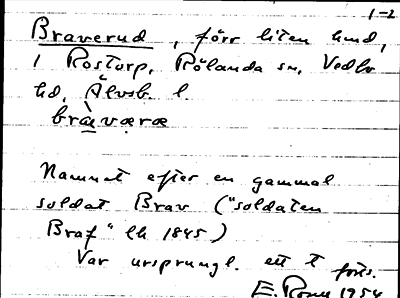 1-2
Braverud, förr liten lund,
i Rostorp, Rölanda sn, Vedbo
hd, Älvsb. l.
bràværæ
Namnet efter en gammal
soldat Brav ("soldaten
Braf" lh 1845)
Var ursprungl. ett t
forts.
E. 1954